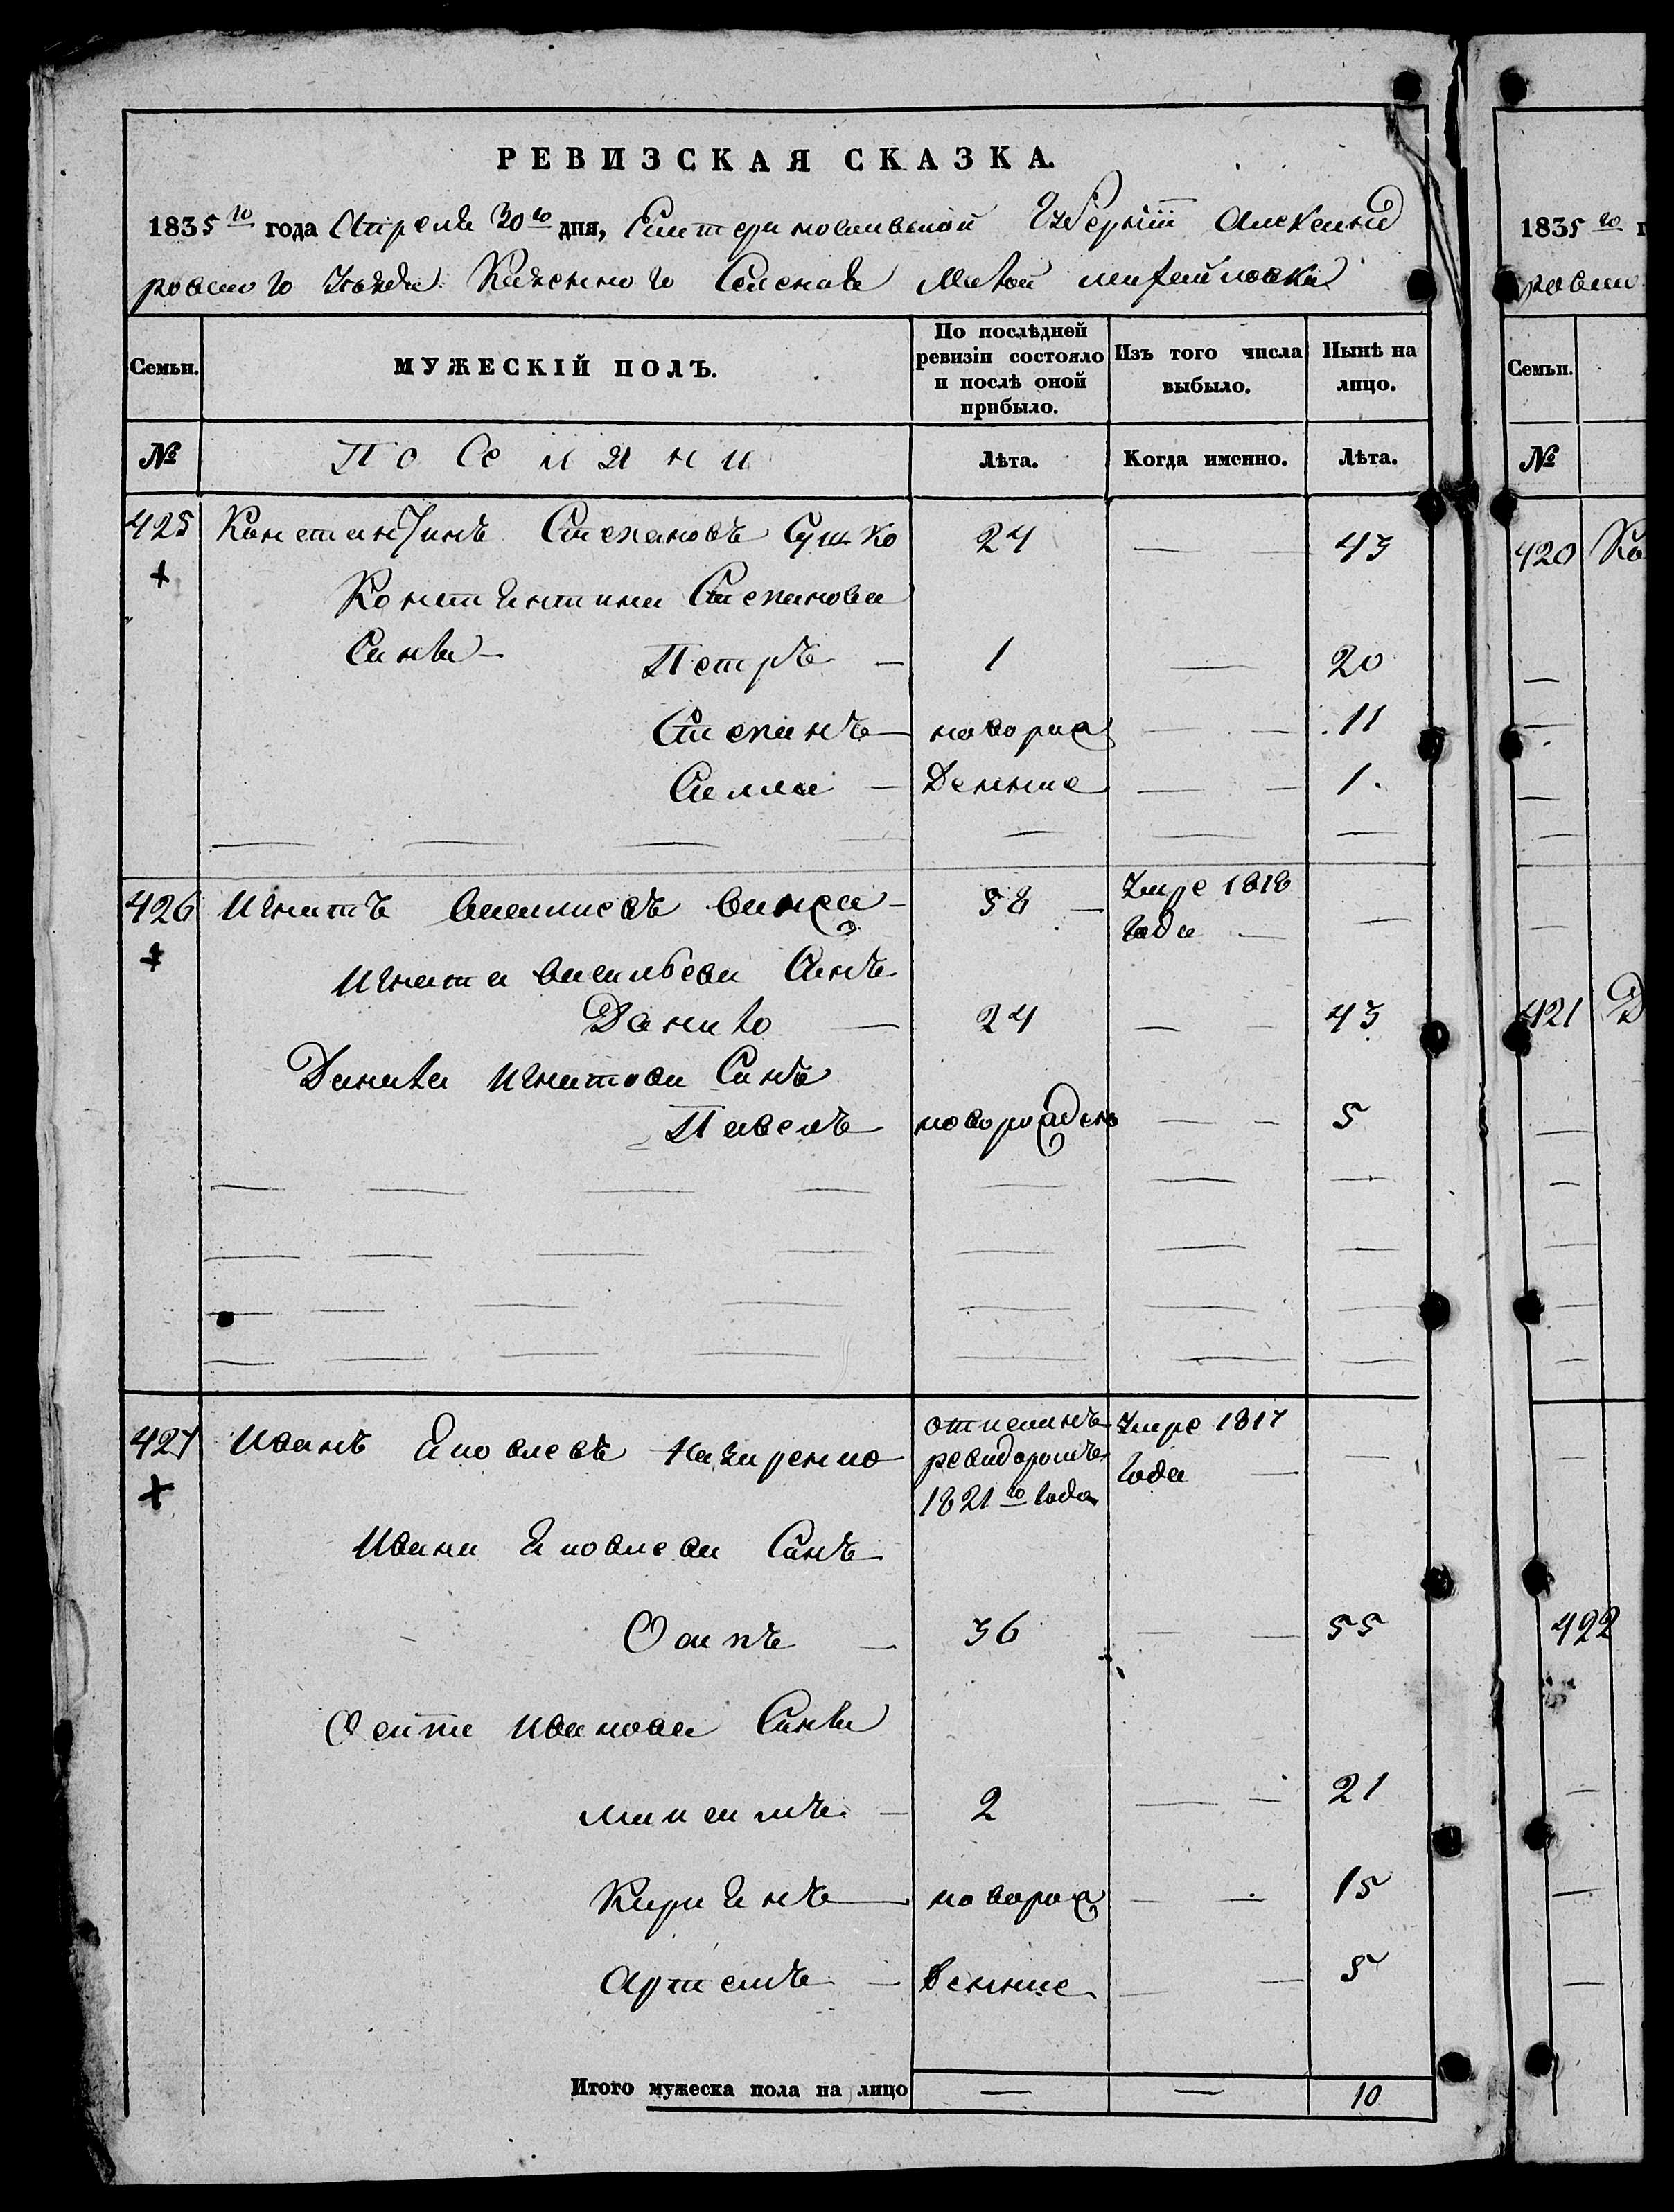 РЕВИЗСКАЯ СКАЗКА.
1835го года Апреля 30го дня, Екатеринославской Губернии Александ
ровского Уезда Казенного Селения Малой михайловки
Семьи.
МУЖЕСКІЙ ПОЛЪ.
По послѣдней ревизіи состояло и послѣ оной прибыло.
Изъ того числа выбыло.
Нынѣ на лицо.
№
Поселяни
Лѣта.
Когда именно.
Лѣта.
425 Константинъ Степановъ Сушко 24 — 43
Константина Степанова
Сины — Петръ — 1 — 20
Степанъ — новорож — 11
Савва — денние — 1.
426 Игнатъ Василиевъ 58 — Умре 1818 —
года —
Игната Васильева Синъ
Данило — 24 — 43
Данила Игнатова Синъ
Павелъ новорожденъ — 5
427 Иванъ Яковлевъ Назаренко отписанъ ревидоромъ 1821го года Умре 1817 года —
Ивана Яковлева Синъ
Осипъ — 36 — 55
Осипа Иванова Сины
максимъ — 2 — 21
новорож — 15
Артемъ — денние — 5
Итого мужеска пола на лицо — — 10
1835го г
ровско
Семьи.
№
420 Ко
421 Д
422